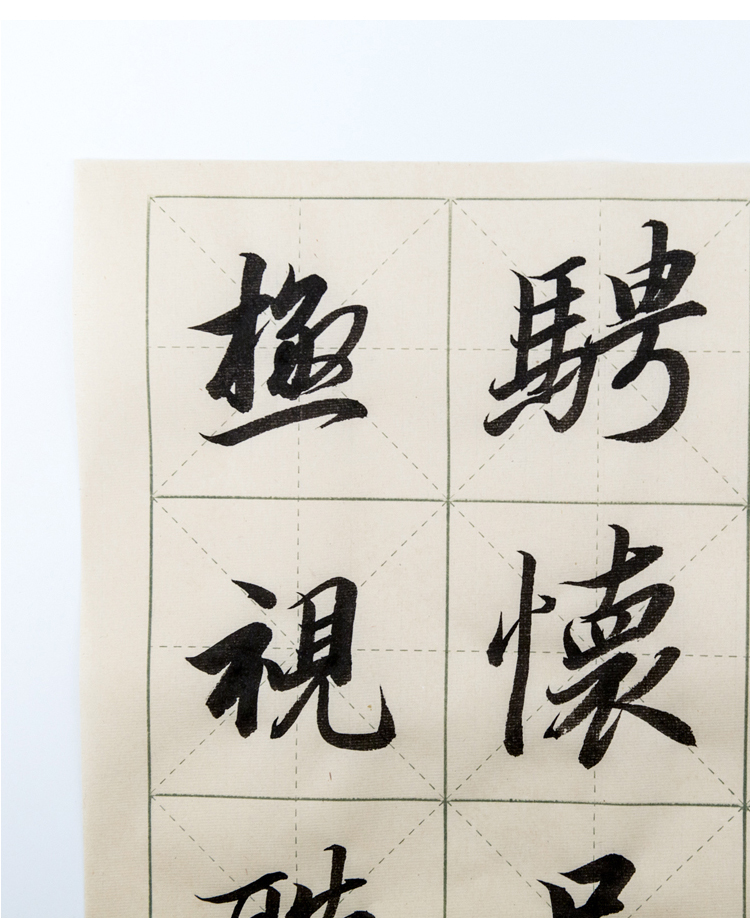 騁懷
極視